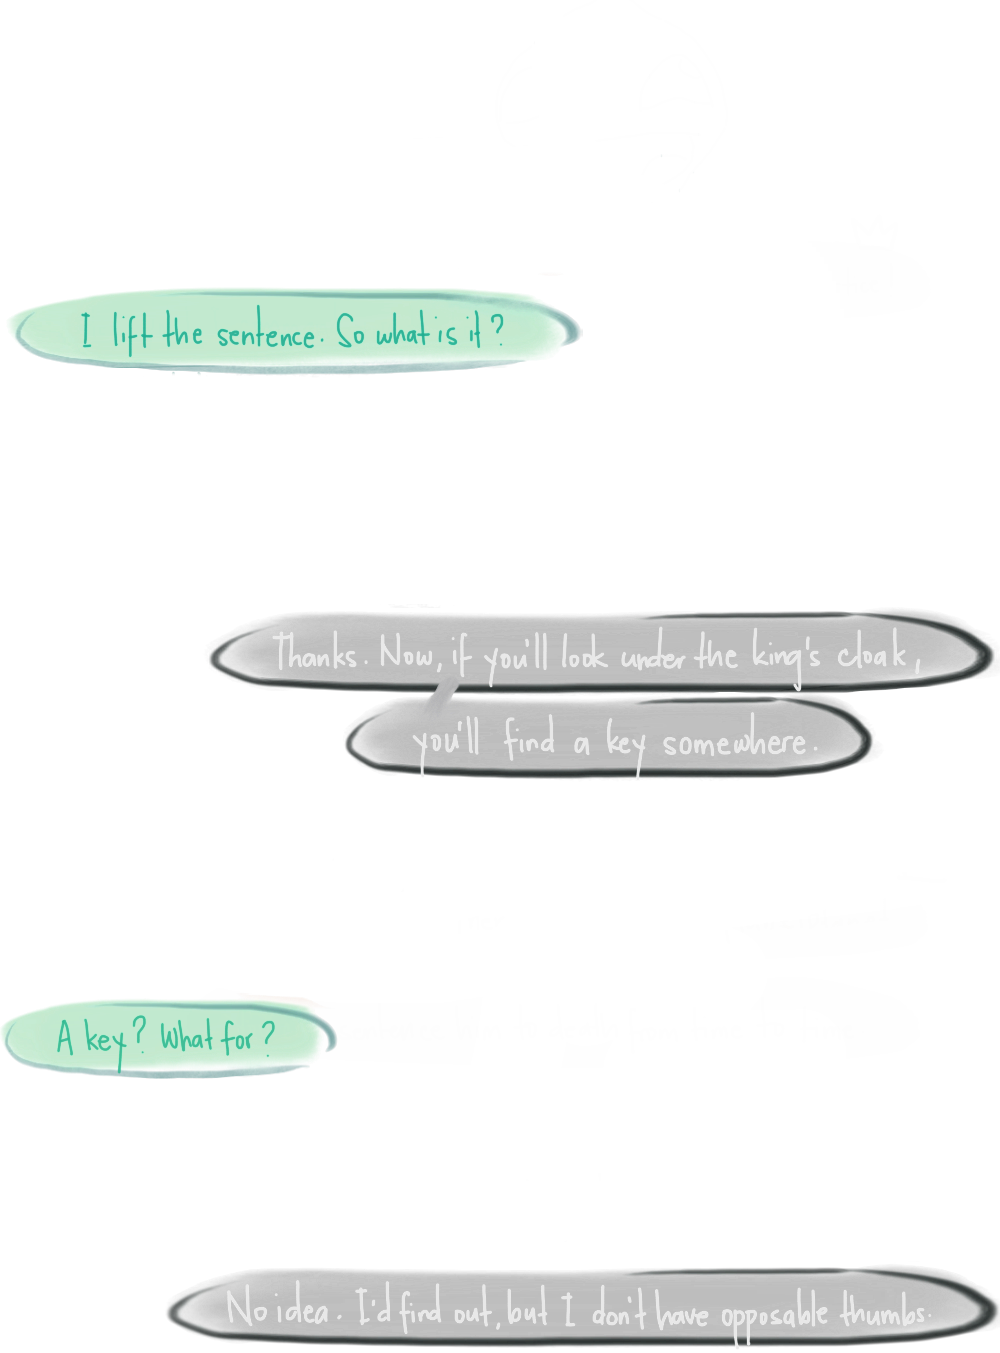 I lift the sentence. So what is it?
Thanks. Now, if you'll look under the king's cloak,
you'll find a key somewhere.
A key? What for?
No idea. I'd find out, but I don't have opposable thumbs.